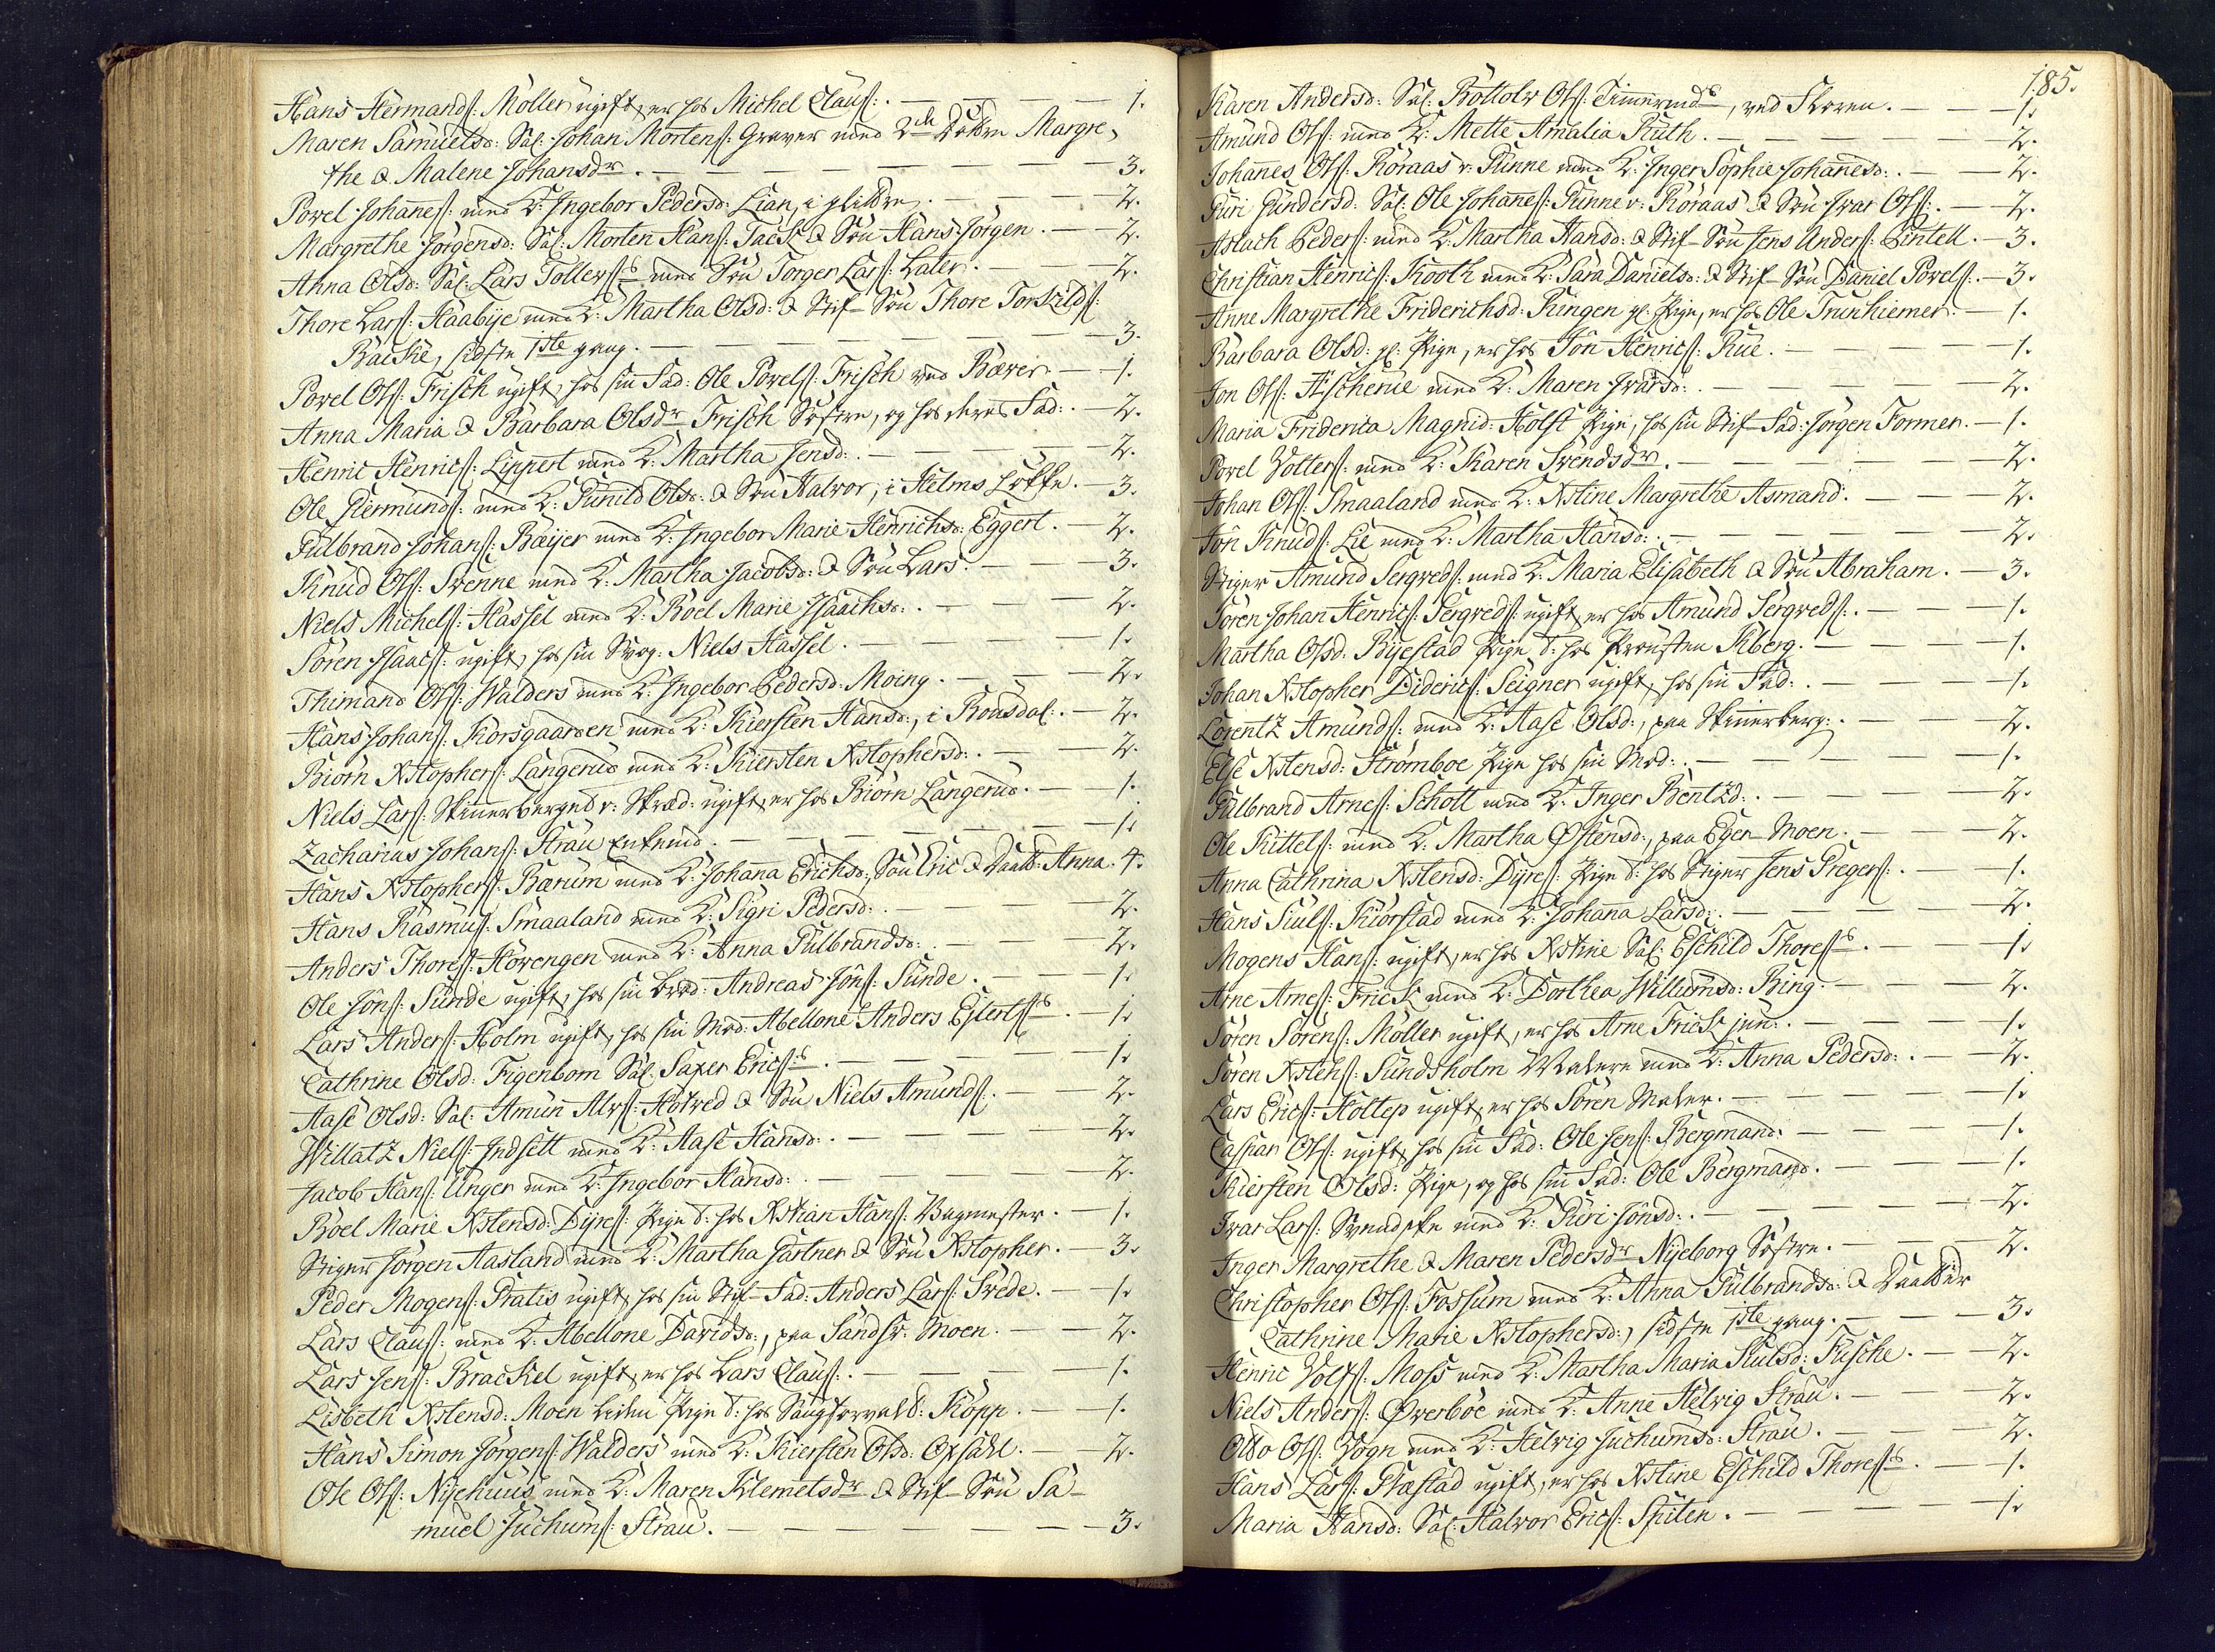 Hans Hermandſ: Möller ugift, er hos Michel Clausſ: . — — — 1.
Maren Samuelsd: Sal: Johan Mortenſ: Graver med 2de Döttre Margre,
the & Malene Johansdr . — — — — 3.
Povel Johanneſ: med K: Ingebor Pedersd: Lian, i . — — 2.
Margrethe Jörgensd: Sal: Morten Hanſ: Tack & Sön Hans Jörgen . — 2.
Anna Olsd: Sal: Lars Tollevſs med Sön Torger Larſ: Later . — — 2.
Thore Larſ: Haabÿe med K: Martha Olsd: & Stif-Sön Thore Torkildſ:
Backe, sidste 1ste gang . — — — — 3.
Povel Olſ: Frisch ugift, hos sin Fad: Ole Povelſ: Frisch ved Bæver . — 1.
Anna Maria & Barbara Olsdr Frisch Söstre, og hos deres Fad: . — 2.
Henric Henricſ: Lippert med K: Martha Jensd: . — — — 2.
Ole Giermundſ: med K: Gunild Olsd: & Sön Halvor, i Helms Lökke . — 3.
Gulbrand Johanſ: Bæÿer med K: Ingebor Marie Henrichsd: Eggert . — 2.
Knud Olſ: Svenne med K: Martha Jacobsd: & Sön Lars . — — 3.
Niels Michelſ: Hassel med K: Boel Marie Isaachsd: . — — 2.
Sören Isaacſ: ugift, hos sin Svog: Niels Hassel . — — — 1.
Thimand Olſ: Walders med K: Ingebor Pedersd: Moing . — — 2.
Hans Johanſ: Korsgaarden med K: Kiersten Hansd:, i Ronsdal: . — 2.
Biörn Xstopherſ: Langerud med K: Kiersten Xstophersd: . — — 2.
Niels Larſ: Skinnerberget v: Skræd: ugift, er hos Biörn Langerud . — 1.
Zacharias Johanſ: Strau Enkemd . — — — — 1.
Hans Xstopherſ: Bærum med K: Johanna Erichsd:, Sön Eric & Daatt: Anna . 4.
Hans Rasmuſ: Smaaland med K: Sigri Pedersd: . — — — 2.
Anders Thoreſ: Hövengen med K: Anna Gulbrandsd: . — — 2.
Ole Jönſ: Sunde ugift, hos sin Brod: Andreas Jönſ: Sunde . — — 1.
Lars Anderſ: Holm ugift, hos sin Mod: Abellone Anders Ejlertſs . — 1.
Cathrine Olsd: Figenbom Sal: Saxer Ericſs . — — — 1.
Aase Olsd: Sal: Amun Alvſ: Hotved & Sön Niels Amundſ: . — — 2.
Willatz Nielſ: Indsett med K: Aase Hansd: . — — — 2.
Jacob Hanſ: Unger med K: Ingebor Hansd: . — — — 2.
Boel Marie Xstensd: Dÿreſ: Pige d: hos Xstian Hanſ: Vagmester . — 1.
Stiger Jörgen Aasland med K: Martha Gartner & Sön Xstopher . — 3.
Peder Mogenſ: Pratis ugift, hos sin Stif-Fad: Anders Larſ: Svede . — 1.
Lars Clausſ: med K: Abellone Davidsd:, paa Sandsv: Moen . — 2.
Lars Jenſ: Brackel ugift, er hos Lars Clausſ: . — — — 1.
Lisbeth Xstensd: Moen liden Pige d: hos Köpp . — 1.
Hans Simon Jörgenſ: Walders med K: Kiersten Olsd: Opsahl . — 2.
Ole Olſ: Nÿehuus med K: Maren Klemetsdr & Stif-Sön Sa-
muel Juchumſ: Strau . — — — — 3.
185.
Karen Andersd: Sal: Bottolv Olſ: Timmermds, ved Skoren . — — 1.
Amund Olſ: med K: Mette Amalia Ruth . — — — 2.
Johannes Olſ: Röraas v: Runne med K: Inger Sophie Johannesd: . — 2.
Guri Gundersd: Sal: Ole Johanneſ: Runne v: Röraas & Sön Ivar Olſ: . — 2.
Aslach Pederſ: med K: Martha Hansd: & Stif-Sön Jens Anderſ: Pintell . — 3.
Christian Henricſ: Kooth med K: Sara Danielsd: & Stif-Sön Daniel Povelſ: . — 3.
Anne Margrethe Friderichsd: Ringen gl: Pige, er hos Ole Trunkiemer . — 1.
Barbara Olsd: gl: Pige, er hos Jon Henricſ: Rue . — — — 1.
Jon Olſ: Ascherue med K: Maren Ivarsd: . — — — 2.
Maria Friderica Magnid: Holst Pige, hos sin Stif-Fad: Jörgen Former . — 1.
Povel Volterſ: med K: Karen Svendsdr . — — — 2.
Johan Olſ: Smaaland med K: Xstine Margrethe Asmand: — — 2.
Jön Knudſ: Lie med K: Martha Hansd: . — — — 2.
Stiger Amund Sergvedſ: med K: Maria Elisabeth & Sön Abraham . — 3.
Sören Johan Henricſ: Sergvedſ: ugift, er hos Amund Sergvedſ: . — 1.
Martha Olsd: Bÿestad Pige d: hos Provsten Kberg . — — 1.
Johan Xstopher Didericſ: Seigner ugift, hos sin Fad: . — — 1.
Lorentz Amundſ: med K: Aase Olsd:, paa Skinnerberg: . — — 2.
Else Xstensd: Strömboe Pige hos sin Mod: . — — — 1.
Gulbrand Arneſ: Schott med K: Inger Bentzd: . — — — 2.
Ole Kittelſ: med K: Martha Östensd:, paa Eger-Moen . — — 2.
Anna Cathrina Xstensd: Dÿreſ: Pige d: hos Stiger Jens Pregerſ: . — 1.
Hans Siulſ: Kiorstad med K: Johanna Larsd: . — — — 2.
Mogens Hanſ: ugift, er hos Xstine Sal: Eschild Thoreſs . — — 1.
Arne Arneſ: Frick med K: Dorthea Willumsd: Bing . — — 2.
Sören Sörenſ: Möller ugift, er hos Arne Frick jun: . — — 1.
Sören Xstenſ: Sundsholm Malere med K: Anna Pedersd: . — 2.
Lars Ericſ: Holtep ugift, er hos Sören Maler . — — — 1.
Caspar Olſ: ugift, hos sin Fad: Ole Jenſ: Bergmand: — — 1.
Kiersten Olsd: Pige, og hos sin Fad: Ole Bergmand . — — 1.
Ivar Larſ: med K: Guri Jönsd: . — — — 2.
Inger Margrethe & Maren Pedersdr Nÿeborg Söstre . — — 2.
Christopher Olſ: Fossum med K: Anna Gulbrandsd: & Daatter
Cathrine Marie Xstophersd:, sidste 1ste gang . — — 3.
Henric Volfſ: Moss med K: Martha Maria Skulsd: Fusche . — 2.
Niels Anderſ: Överböe med K: Anne Helvig Strau . — — 2.
Otto Olſ: Vogn med K: Helvig Juchumsd: Strau . — — 2.
Hans Larſ: Plastad ugift, er hos Xstine Eschild Thoreſs . — 1.
Maria Hansd: Sal: Halvor Ericſ: Spiten . — — — 1.